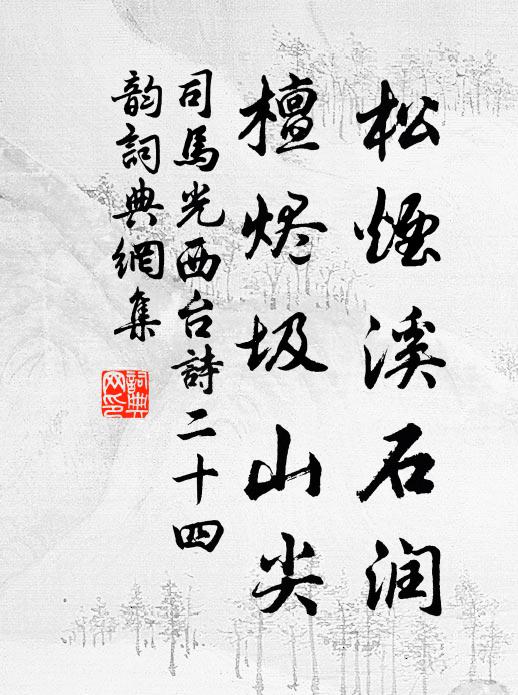 松煙溪石润
檀烬圾山尖
司馬光西台詩二十四
韵詞典網集
詞典网印